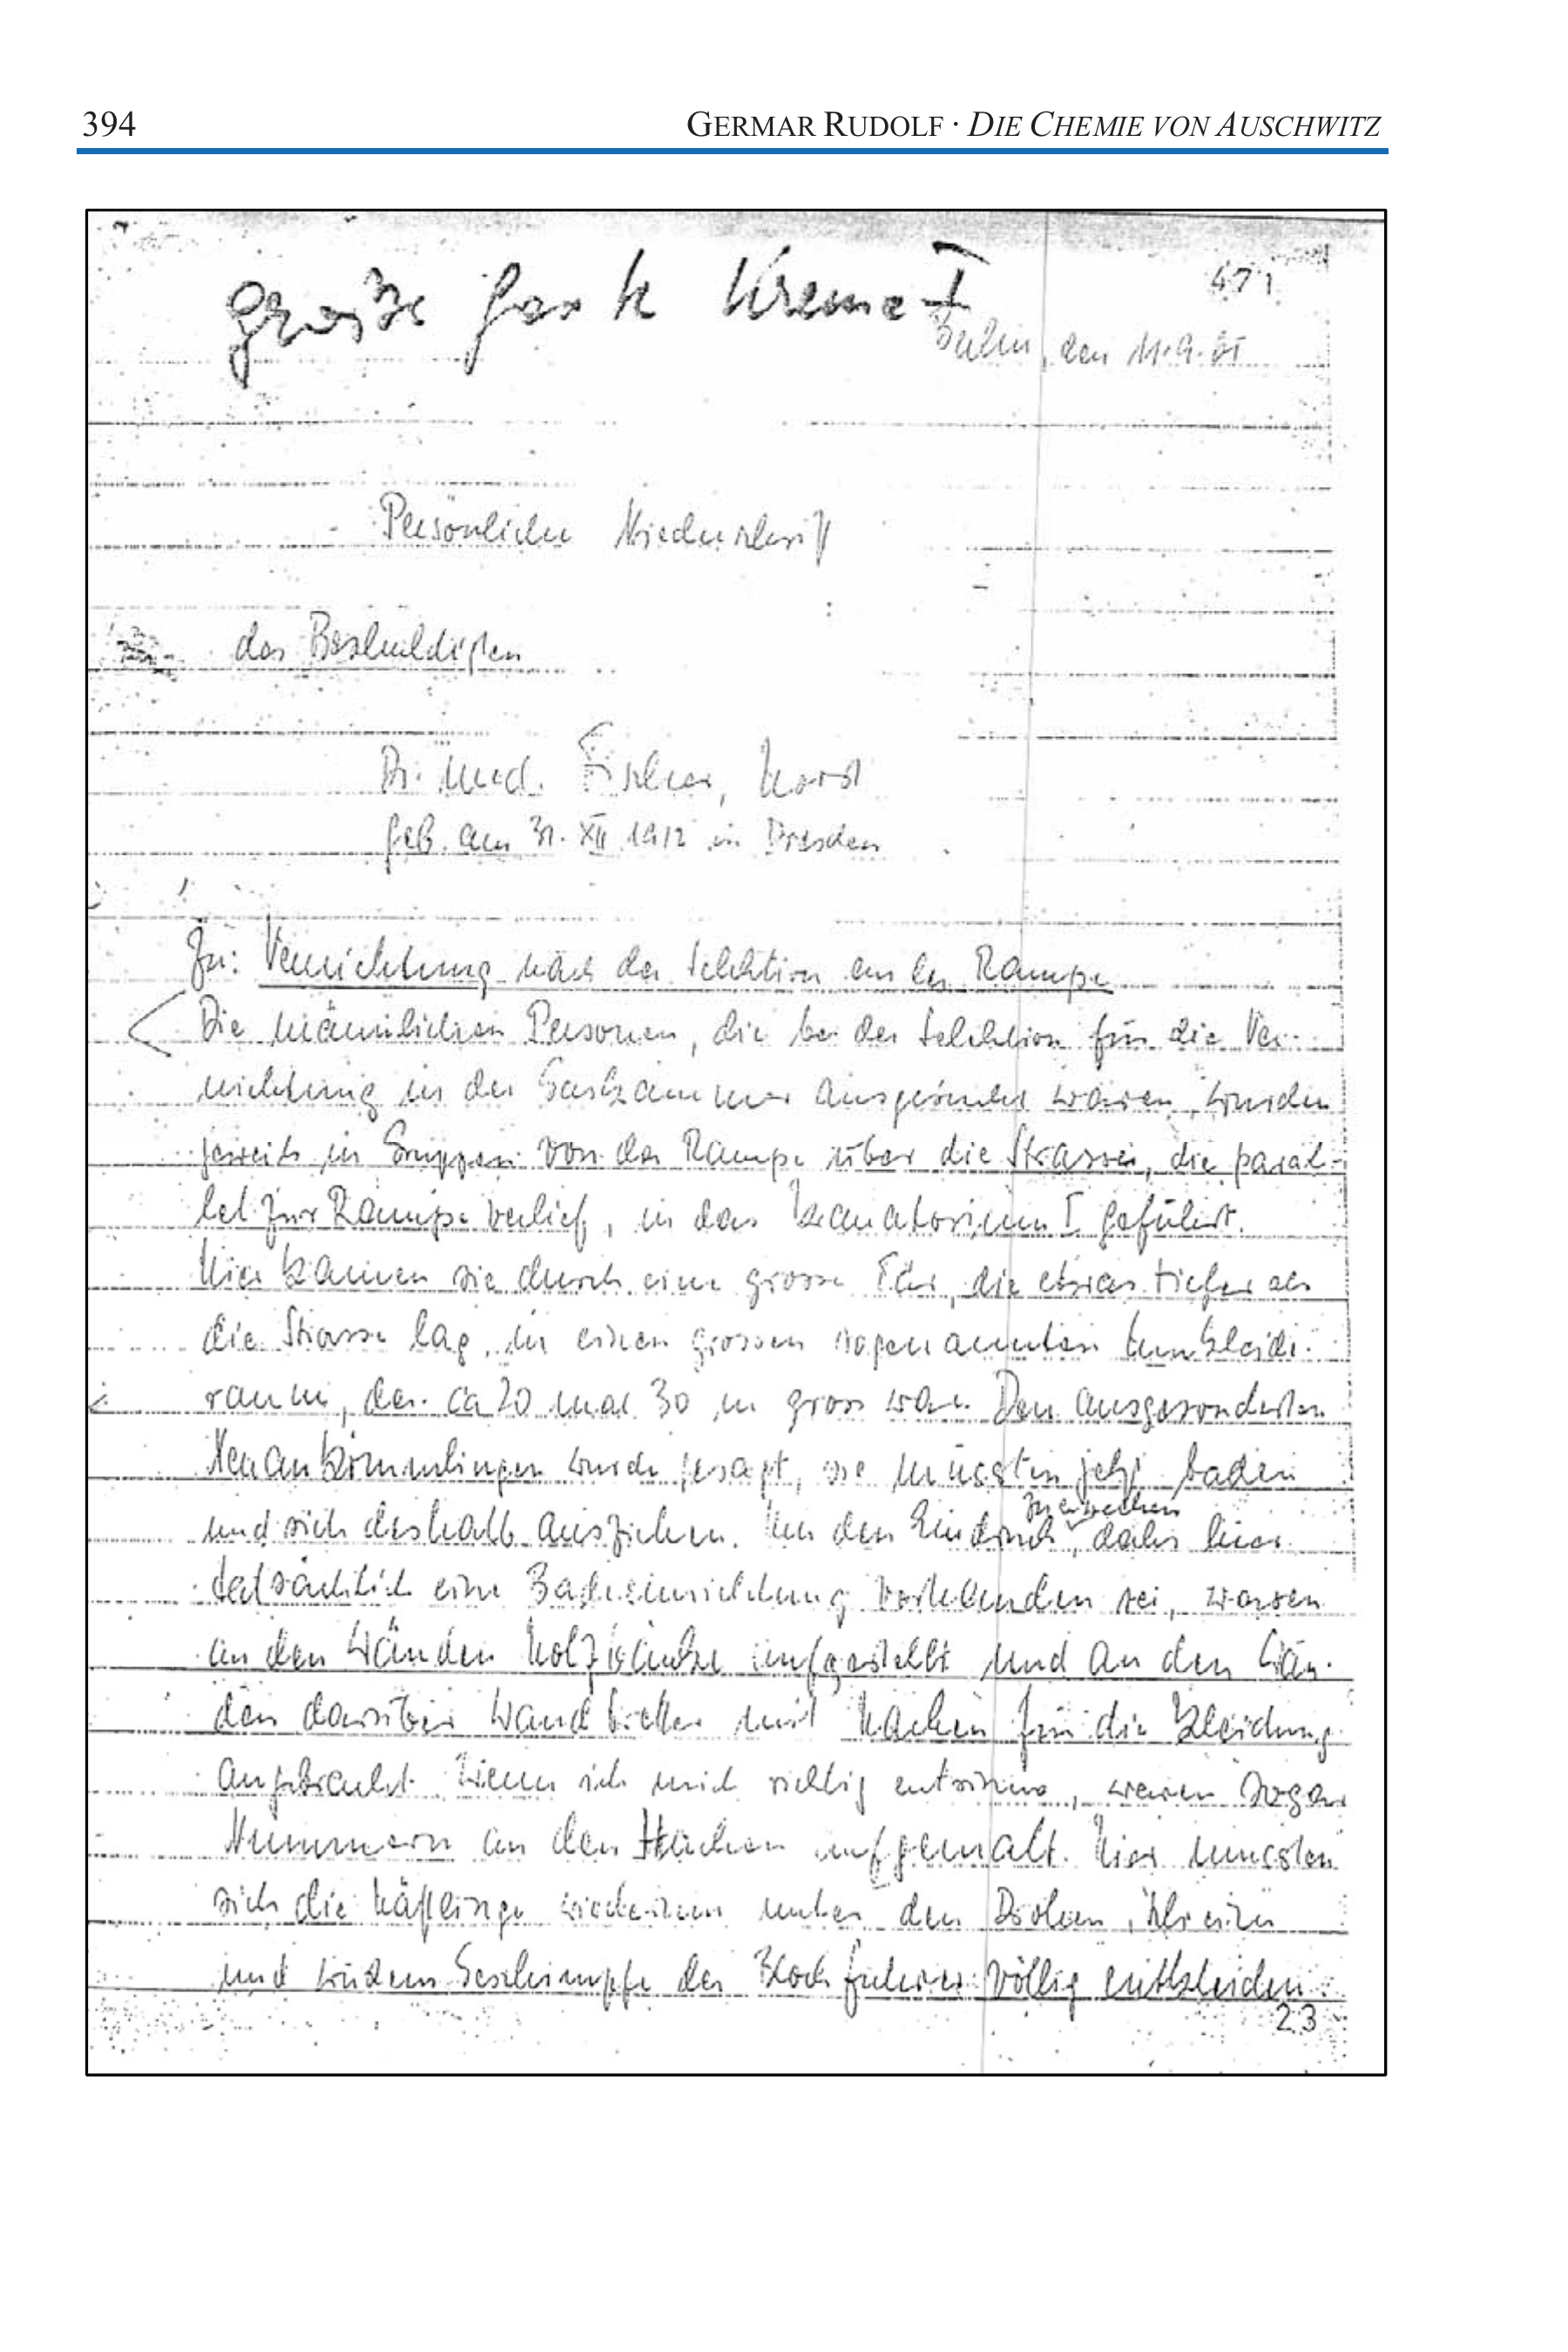 394
GERMAR RUDOLF · DIE CHEMIE VON AUSCHWITZ
große Kreme I
471
Berlin, den 11.9.65
Persönliche Niederschrift
des Beschuldigten
Dr. med. Fischer, Horst
geb. am 31. XII 1912 in Dresden
Zu: Vernichtung nach der Selektion an der Rampe
Die männlichen Personen, die bei der Selektion für die Ver-
nichtung in der Gaskammer ausgesondert waren, wurden
jeweils in Gruppen von der Rampe über die Strasse, die paral-
lel zur Rampe verlief, in das Krematorium I geführt.
Hier kamen sie durch eine grosse Tür, die etwas tiefer als
die Strasse lag, in einen grossen sogenannten Umkleide-
raum, der ca 20 mal 30 m gross war. Den ausgesonderten
Neuankömmlingen wurde gesagt, sie müssten jetzt baden
und sich deshalb ausziehen. Um den Eindruck zu erwecken, dass hier
tatsächlich eine Badeeinrichtung vorhanden sei, waren
an den Wänden Holzbänke aufgestellt und an den Wän-
den darüber Wandbretter mit Haken für die Kleidung
angebracht. Wenn ich mich richtig entsinne, waren sogar
Nummern an den Haken aufgemalt. Hier mussten
sich die Häftlinge wiederum unter den Drohen, Schreien
und wüstem Geschimpfe der Blockführer völlig entkleiden.
23